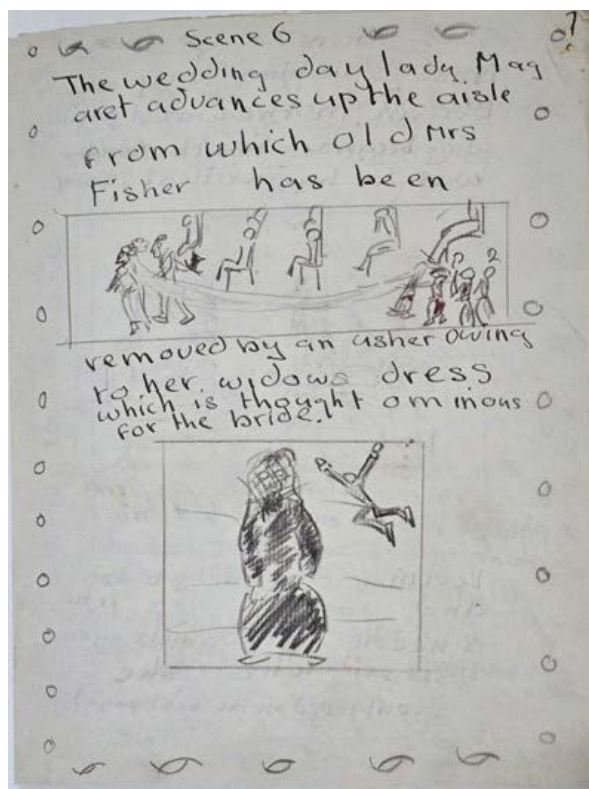 Scene 6
7
The wedding day lady Mag
aret advances up the aisle
from which old Mrs
Fisher has been
removed by an usher owing
to her widows dress
which is thought ominous
for the bride.